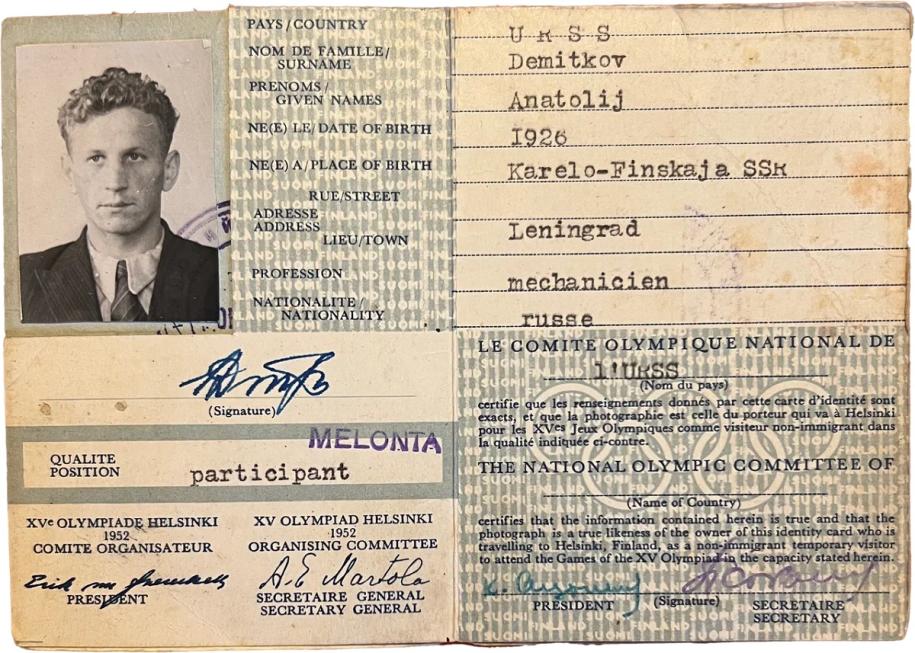 PAYS/COUNTRY
U R S S
NOM DE FAMILLE/
SURNAME
Demitkov
PRENOMS/
GIVEN NAMES
Anatolij
NE(E) LE/DATE OF BIRTH
1926
NE(E) A/PLACE OF BIRTH
Karelo-Finskaja SSR
RUE/STREET
ADRESSE
ADDRESS
LIEU/TOWN
Leningrad
PROFESSION
mechanicien
NATIONALITE/
NATIONALITY
russe
(Signature)
MELONTA
QUALITE
POSITION
participant
XVe OLYMPIADE HELSINKI
1952
COMITE ORGANISATEUR
PRESIDENT
XV OLYMPIAD HELSINKI
1952
ORGANISING COMMITTEE
A.E. Martola
SECRETAIRE GENERAL
SECRETARY GENERAL
LE COMITE OLYMPIQUE NATIONAL DE
l'URSS
(Nom du pays)
certifie que les renseignements donnés par cette carte d'identité sont
exacts, et que la photographie est celle du porteur qui va à Helsinki
pour les XVes Jeux Olympiques comme visiteur non-immigrant dans
la qualité indiquée ci-contre.
THE NATIONAL OLYMPIC COMMITTEE OF
(Name of Country)
certifies that the information contained herein is true and that the
photograph is a true likeness of the owner of this identity card who is
travelling to Helsinki, Finland, as a non-immigrant temporary visitor
to attend the Games of the XV Olympiad in the capacity stated herein.
PRESIDENT
(Signature)
SECRETAIRE
SECRETARY